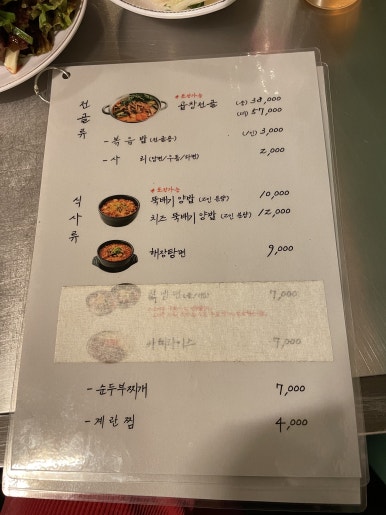 전골류
*포장가능
곱창전골 (중) 38,000
(대) 57,000
- 볶음밥 (전골용) (1인) 3,000
- 사 리 (당면/우동/라면) 2,000
식사류
*포장가능
뚝배기 양밥 (2인 분량) 10,000
치즈 뚝배기 양밥 (2인 분량) 12,000
해장탕면 9,000
7,000
7,000
- 순두부찌개 7,000
- 계란찜 4,000